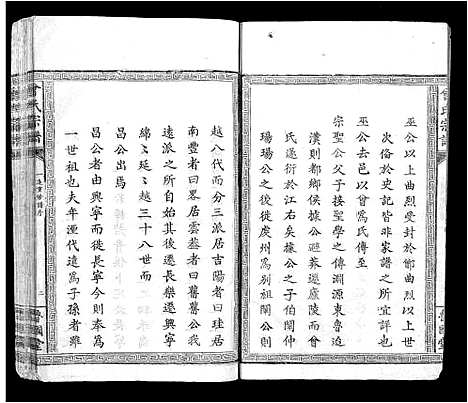 巫公以上曲烈受封於鄫曲烈
次俗於史記皆非家譜之所宜詳也
巫公去邑以曾為氏傳至
宗聖公父子接聖學之傳淵源東魯迨
漢則都鄉侯據公避莽遷廬陵而曾
氏遂衍於江右矣據公之子伯閩仲
瑒瑒公徙虔州為別祖閩公
越八代而分三派居吉陽者曰珪居
南豐者曰畧居雲葢者曰舊舊公我
遠派之所自始其後遷長樂遷興寧
綿々延々越三十八世而
昌公出焉由興寧而徙
昌公者長寧今則奉為
一世祖也夫年湮代遠為子孫者雖
曾氏宗譜